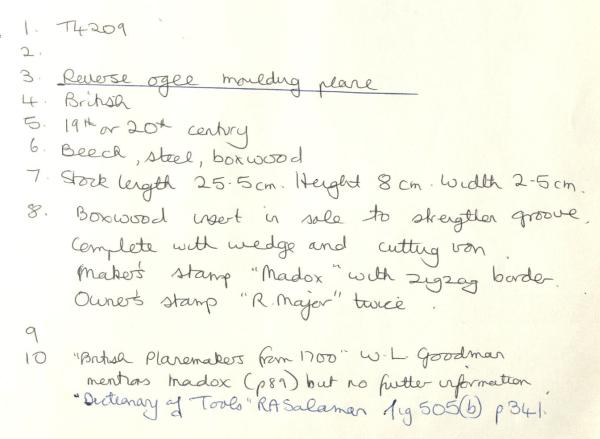 1. T4209
2.
3. Reverse ogee moulding plane
4. British
5. 19th or 20th century
6. Beech, steel, boxwood
7. Stock length 25.5cm. Height 8cm. Width 2.5cm.
8. Boxwood insert in sole to strengthen groove.
Complete with wedge and cutting iron.
Maker's stamp "Madox" with zigzag border.
Owner's stamp "R. Major" twice.
9
10 "British Planemakers from 1700" W.L Goodman
mentions Madox (p89) but no further information.
"Dictionary of Tools" RA Salaman fig 505(b) p341.